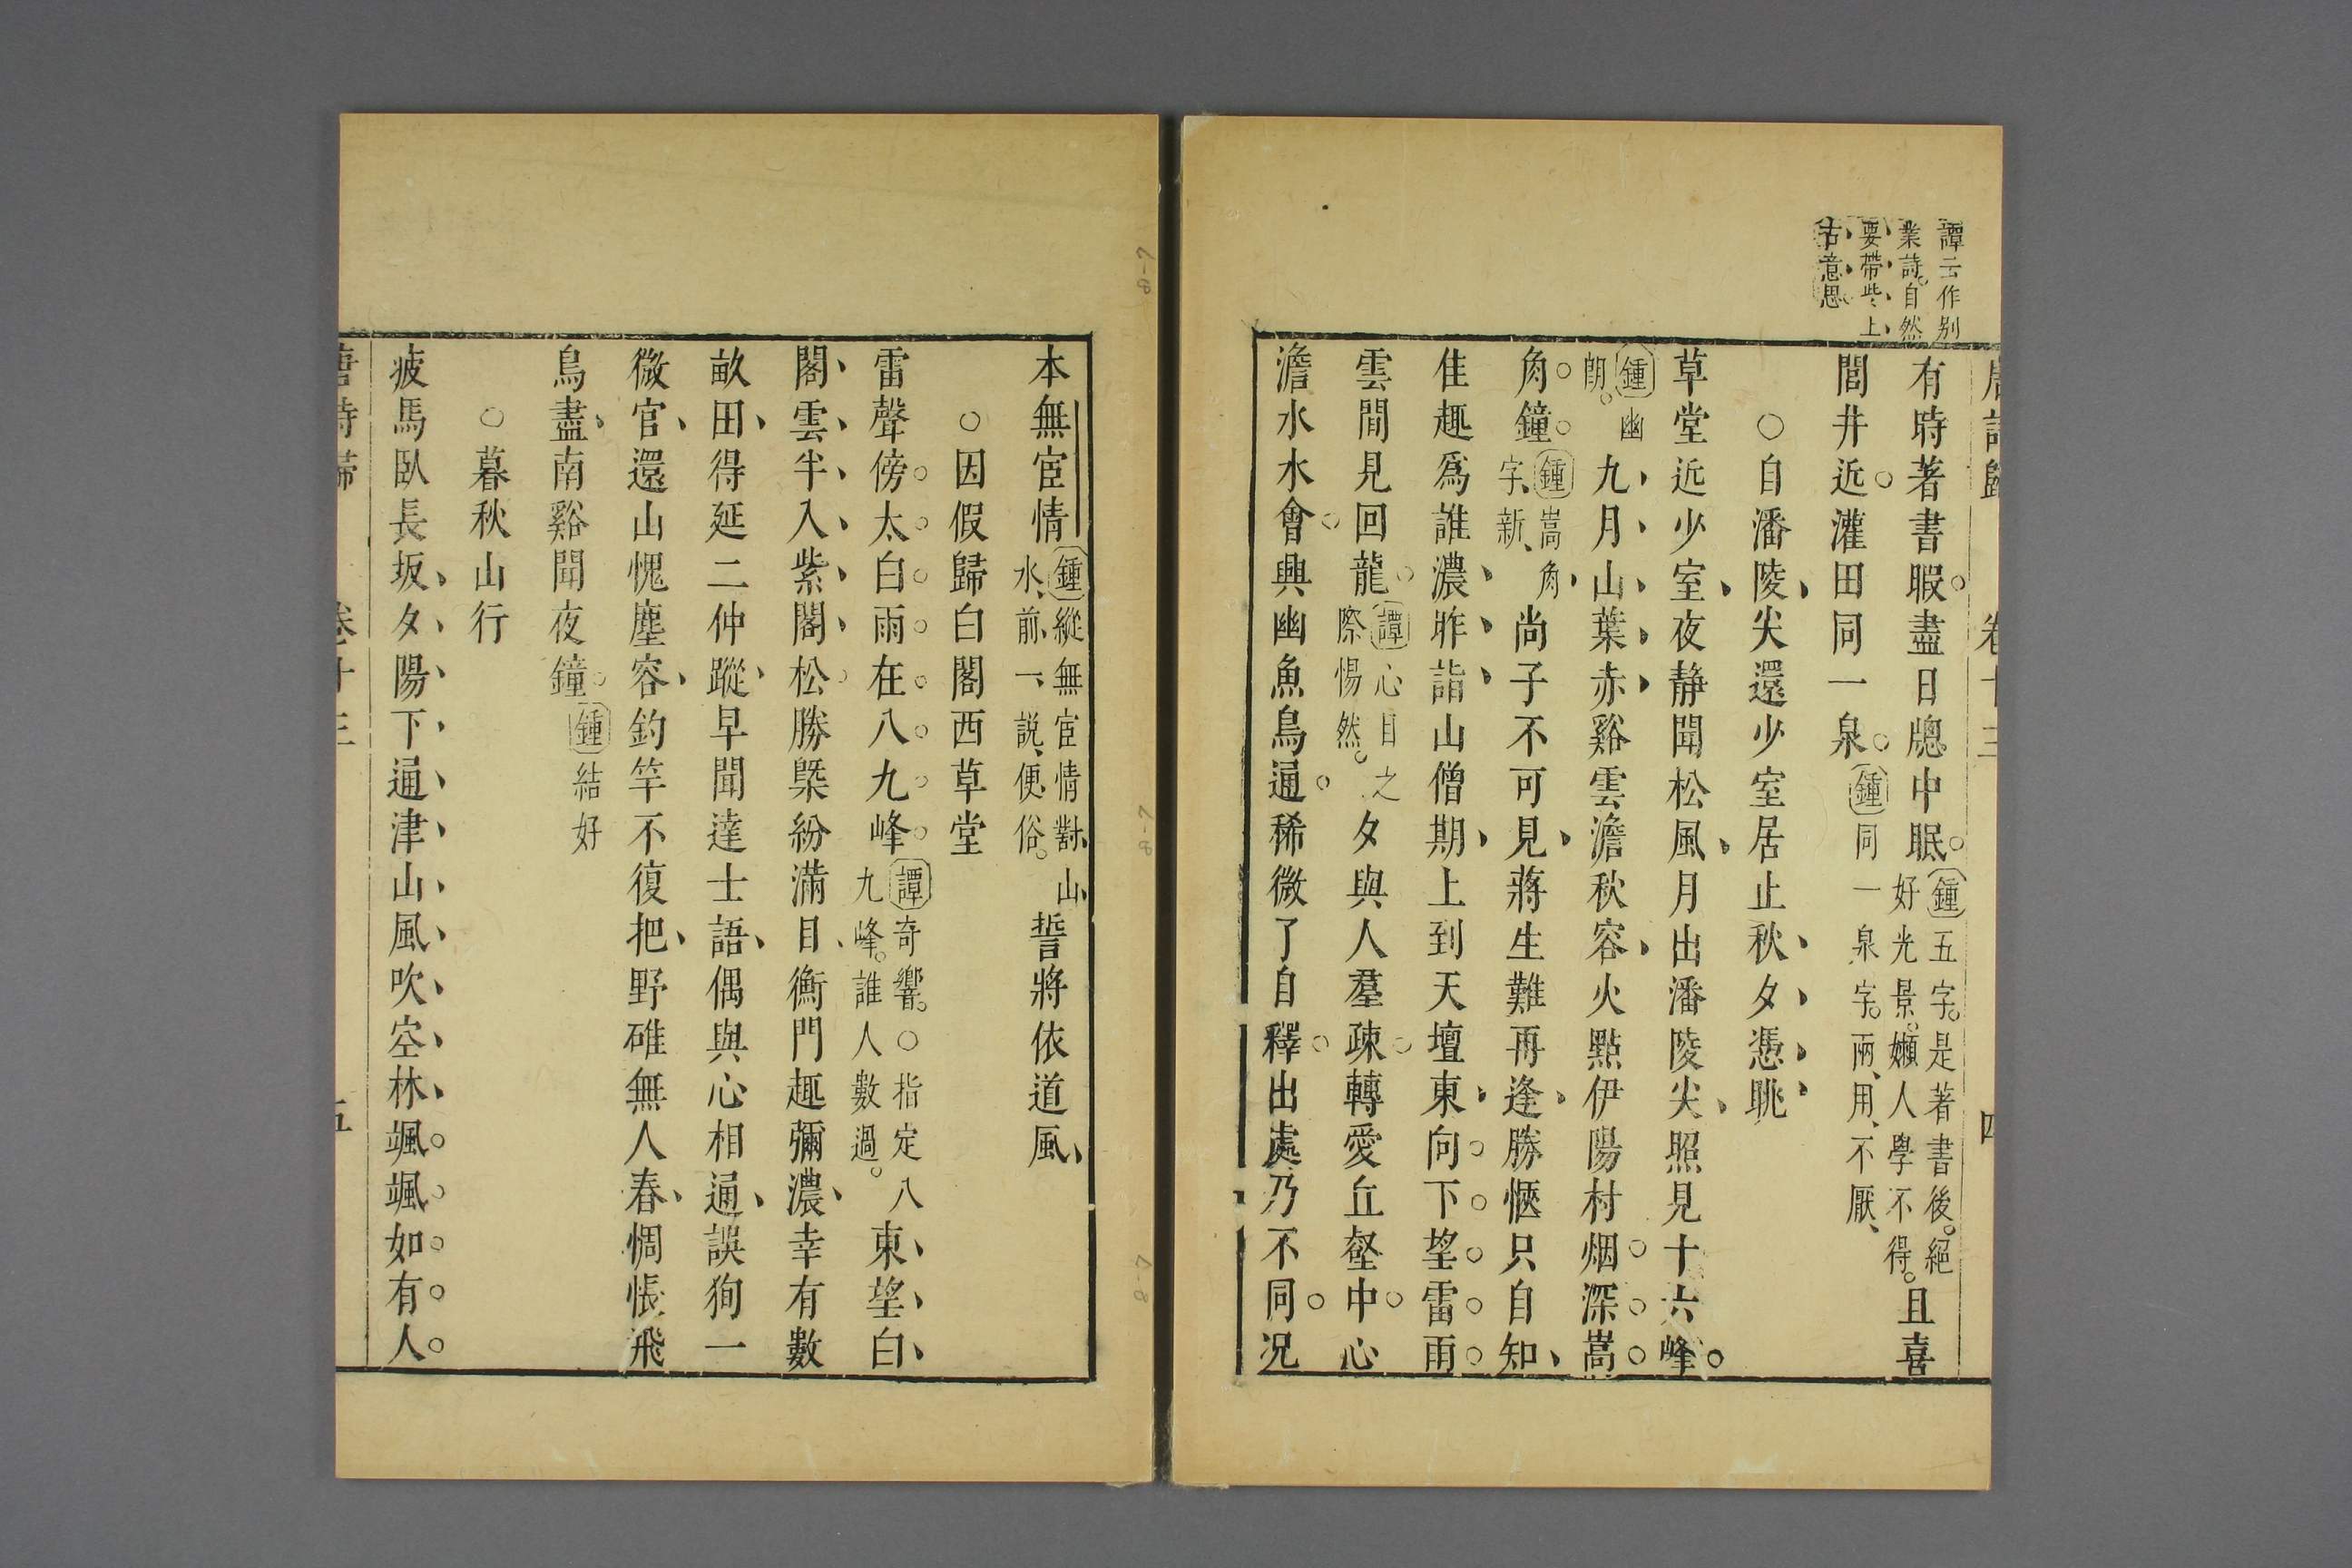 唐詩歸 卷十三 四
譚云作别
業詩。自然
要帶些上
古意思
有時著書暇。盡日牕中眠。鍾五字。是著書後。絕好光景。嬾人學不得。且喜
閭井近。灌田同一泉。鍾同一泉字。兩用、不厭、
○自潘陵尖還少室居止秋夕憑眺
草堂近少室、夜静聞松風、月出潘陵尖、照見十六峰。
鍾幽朗。九月山葉赤、谿雲澹秋容、火點伊陽村烟深嵩
角。鐘。鍾嵩角字、新、尚子不可見、蔣生難再逢、勝愜只自知、
佳趣爲誰濃、昨詣山僧期、上到天壇東、向下望雷雨。
雲間見回龍。譚心目之際惕然。夕與人羣疎。轉愛丘壑中。心
澹水木會。興幽魚鳥通。稀微了自釋。出處乃不同。况
本無宦情鍾縱無宦情對、山水、前、一、説、便俗。誓將依道風、
○因假歸白閣西草堂
雷聲傍太白。雨在八九峰。譚奇響。○指定八九峰。誰人數過。東望白
閣、雲半入紫閣松。勝槩紛滿目、衡門趣彌濃、幸有數
畝田、得延二仲蹤、早聞達士語、偶與心相通、誤狥一
微官、還山愧塵容、釣竿不復把、野碓無人舂、惆悵飛
鳥盡、南谿聞夜鐘。鍾結好
○暮秋山行
疲馬臥長坂、夕陽下通津、山風吹空林、颯颯如有人。
唐詩歸 卷十三 五